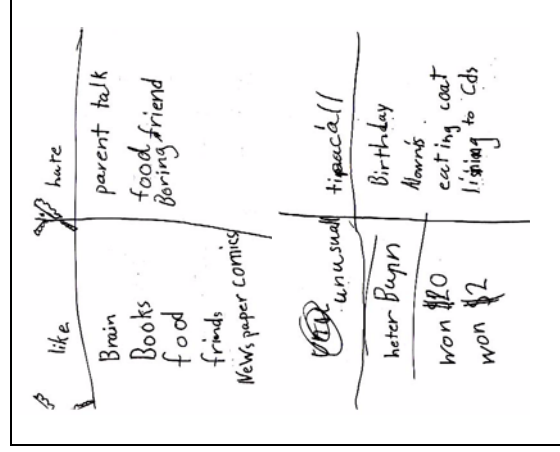 like
Brain
Books
food
frinds
NeWs paper comics
hate
parent talk
food friend
Boring
unusuall
heter
won $20
won $2
tipacall
Birthday
eating coat
to Cds